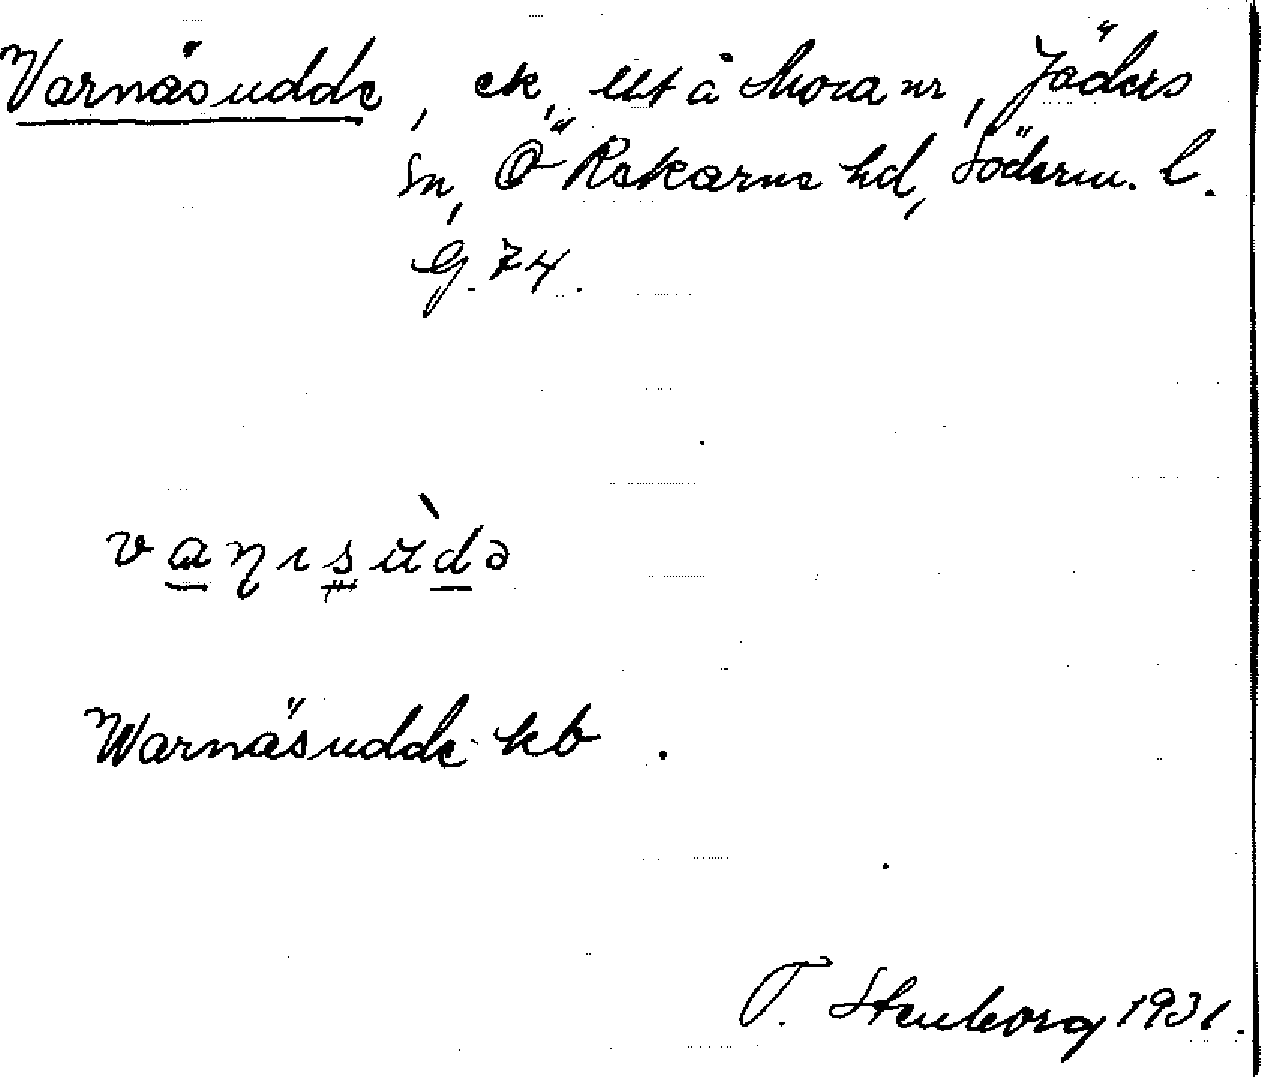 Varnäsudde, ek, utt å Mora nr, Jäders
sn, Ö Rekarne hd, Söderm. l.
G. 74.
vaṇısùdə
Warnäsudde kb.
T. Stenborg 1931.